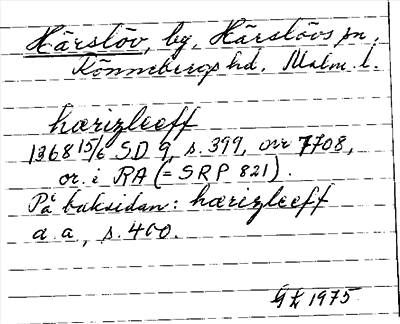 Härslöv, by, Härslövs sn,
Rönnebergs hd. Malm. l.
hærizleeff
1368 15/6 SD 9, s. 399, nr 7708,
or. i RA (= SRP 821).
På baksidan: hærizleeff
a.a., s. 400.
1975